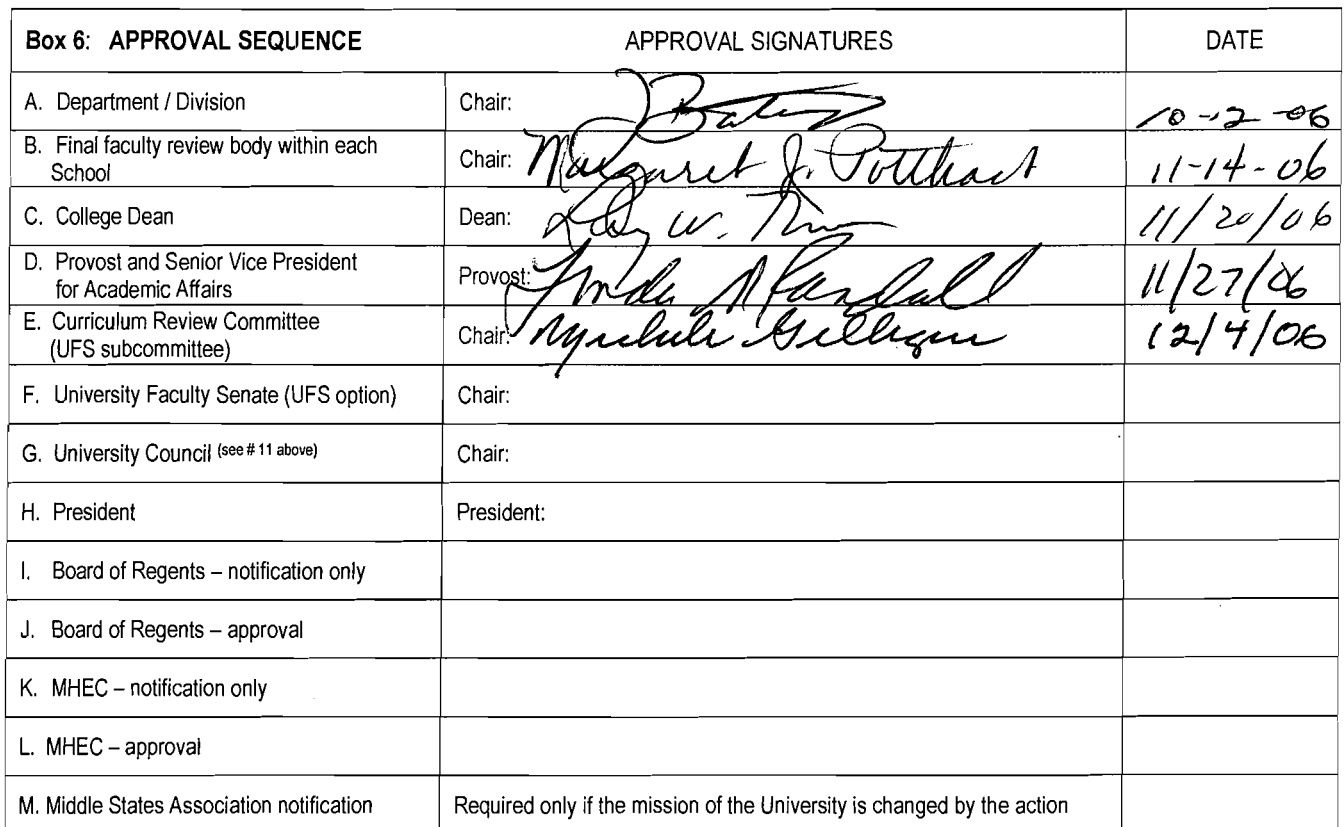 Box 6: APPROVAL SEQUENCE APPROVAL SIGNATURES DATE
A. Department / Division Chair: 10-2-06
B. Final faculty review body within each
School Chair: Margaret J. Potthast 11-14-06
C. College Dean Dean: W. 11/20/06
D. Provost and Senior Vice President
for Academic Affairs Provost: Randall 11/27/06
E. Curriculum Review Committee
(UFS subcommittee) Chair: 12/4/06
F. University Faculty Senate (UFS option) Chair:
G. University Council (see # 11 above) Chair:
H. President President:
I. Board of Regents – notification only
J. Board of Regents – approval
K. MHEC – notification only
L. MHEC – approval
M. Middle States Association notification Required only if the mission of the University is changed by the action